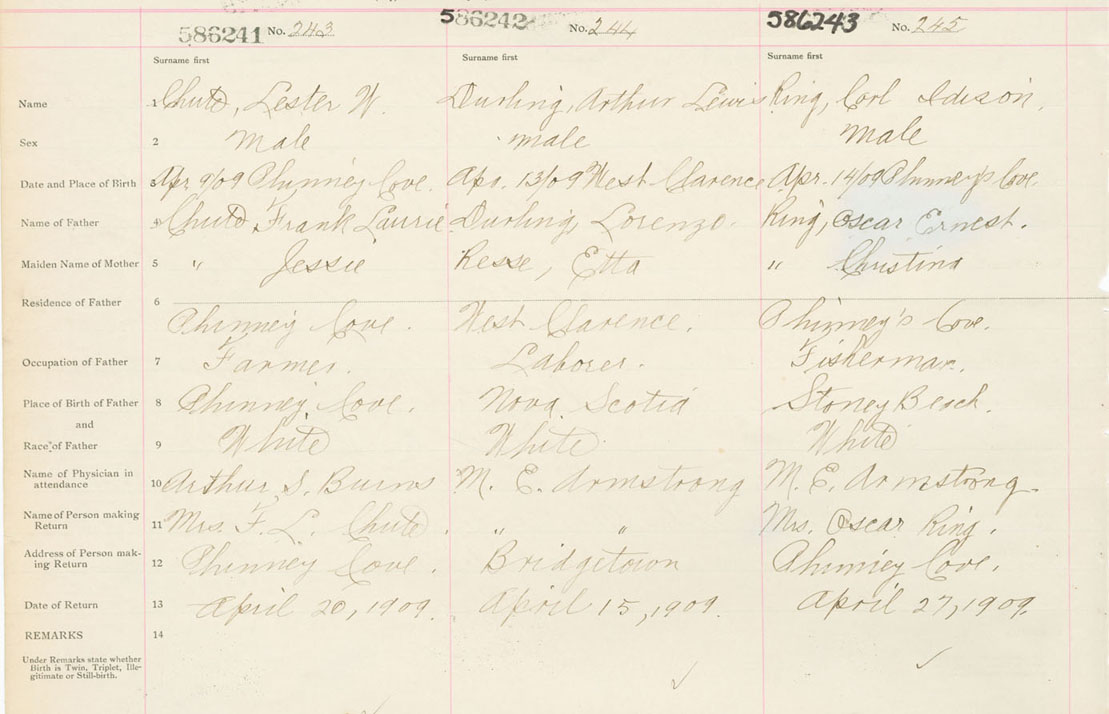 586241 No. 243 586242 No. 244 586243 No. 245
Surname first Surname first Surname first
Name 1 Chute, Lester W. Durling, Arthur Lewis King, Carl Edison.
Sex 2 Male male Male
Date and Place of Birth 3 Apr 9/09 Phinney Cove. Apr. 13/09 West Clarence Apr. 14/09 Phinney's Cove.
Name of Father 4 Chute Frank Laurie Durling, Lorenzo. Ring, Oscar Ernest.
Maiden Name of Mother 5 " Jessie Resse, Etta " Christina
Residence of Father 6
Phinney Cove. West Clarence. Phinney's Cove.
Occupation of Father 7 Farmer. Laborer. Fisherman.
Place of Birth of Father 8 Phinney Cove. Nova Scotia Stoney Beach.
and
Race of Father 9 White White White
Name of Physician in
attendance 10 Arthur S. Burns M. E. Armstrong M. E. Armstrong.
Name of Person making
Return 11 Mrs. F. L. Chute. " " Mrs. Oscar Ring.
Address of Person mak-
ing Return 12 Phinney Cove. Bridgetown Phinney Cove.
Date of Return 13 April 20, 1909. April 15, 1909. April 27, 1909.
REMARKS 14
Under Remarks state whether
Birth is Twin, Triplet, Ille-
gitimate or Still-birth.